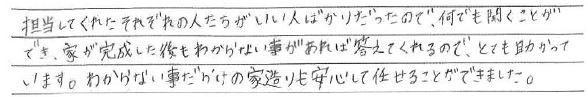 担当してくれたそれぞれの人たちがいい人ばかりだったので、何でも聞くことが
でき、家が完成した後もわからない事があれば答えてくれるので、とても助かって
います。わからない事だらけの家造りも安心して任せることができました。